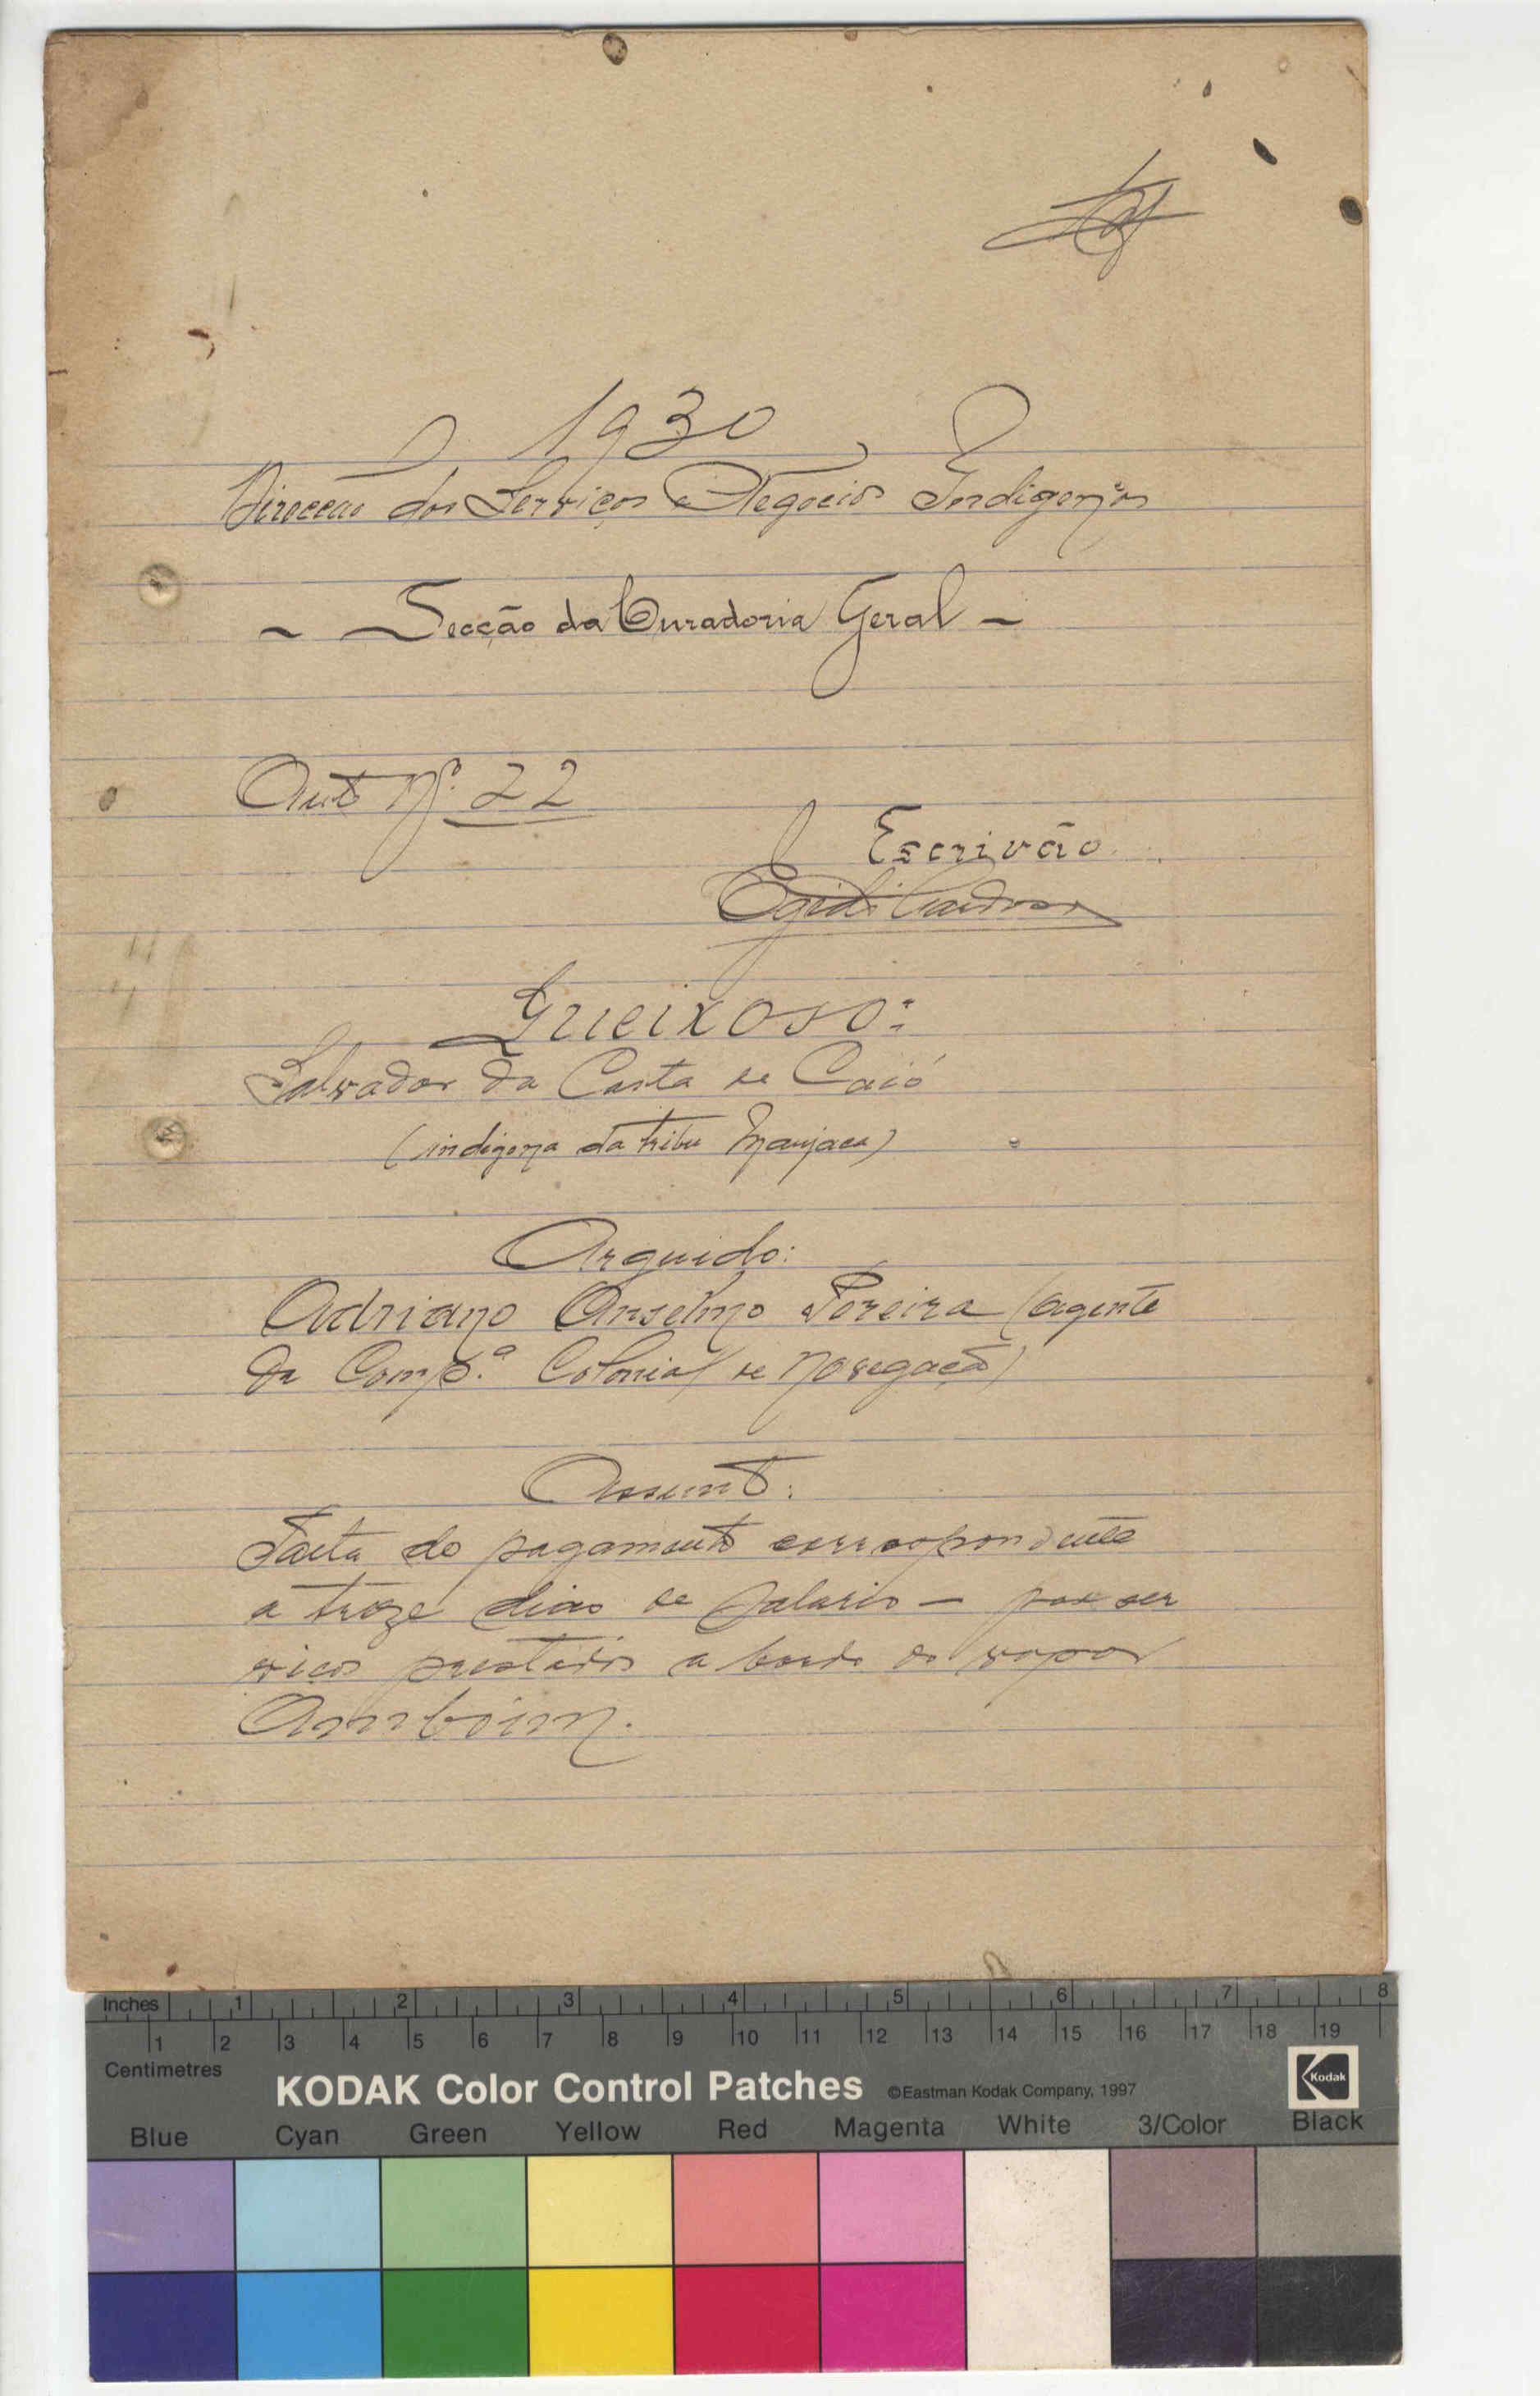 1930
Direccão dos Serviços e Negocios Indigenas
- Secção da Curadoria Geral -
Auto Nº. 22
O Escrivão
Egidi Cardoso
Queixoso:
Salvador da Costa de Caió
(indigena da tribu Manjaca)
Arguido:
Adriano Anselmo Pereira (agente
da Comp.ª Colonial de Navegação)
Assunto:
Falta do pagamento correspondente
a treze dias de salario - por ser
viços prestados a bordo do vapor
Amboim.
Inches 1 2 3 4 5 6 7 8
1 2 3 4 5 6 7 8 9 10 11 12 13 14 15 16 17 18 19
Centimetres
KODAK Color Control Patches ©Eastman Kodak Company, 1997 Kodak
Blue Cyan Green Yellow Red Magenta White 3/Color Black